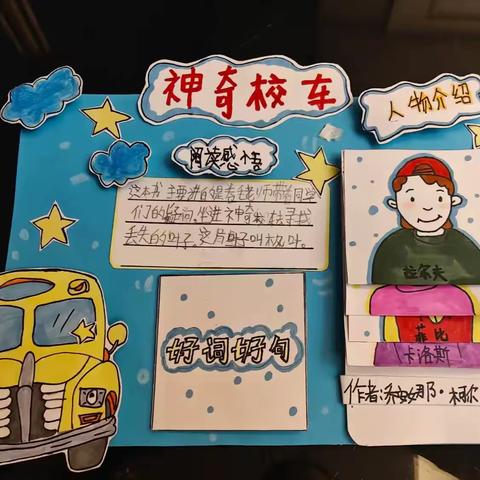 神奇校车
人物介绍
阅读感悟
这本书主要讲的是卷毛老师带同学
们的好问,坐进神奇校车寻找
丢失的叶子,这片叶子叫枫叶。
好词好句
拉尔夫
菲比
卡洛斯
作者:乔安娜·柯尔